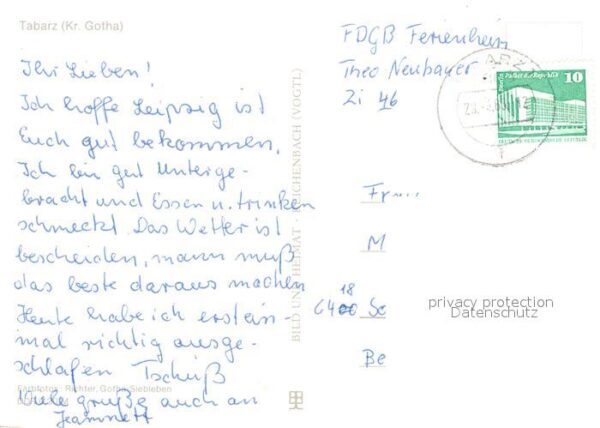 Tabarz (Kr. Gotha)
Ihr Lieben!
Ich hoffe Leipzig ist
Euch gut bekommen.
Ich bin gut unterge-
bracht und Essen u. trinken
schmeckt. Das Wetter ist
bescheiden, mann muß
das beste daraus machen
Heute habe ich erstein-
mal richtig ausge-
schlafen Tschüß
Viele grüße auch an
Jeannett
Farbfotos: Richter, Gotha-Siebleben
BILD UND HEIMAT REICHENBACH (VOGTL)
FDGB Ferienheim
Theo Neubauer
Zi 46
TABARZ
10
Berlin, Palast der Republik
DEUTSCHE DEMOKRATISCHE REPUBLIK
Fr
M
18
6400 So
Be
privacy protection
Datenschutz